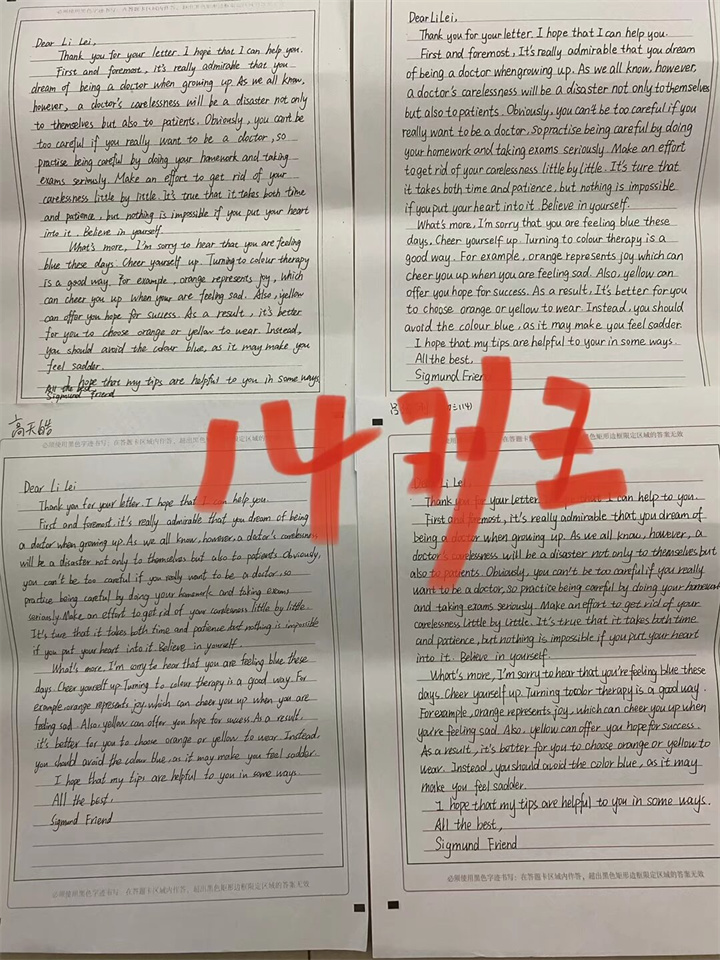 Dear Li Lei,
Thank you for your letter. I hope that I can help you.
First and foremost, it's really admirable that you
dream of being a doctor when growing up. As we all know,
however, a doctor's carelessness will be a disaster not only
to themselves but also to patients. Obviously, you can't be
too careful if you really want to be a doctor, so
practise being careful by doing your homework and taking
exams seriously. Make an effort to get rid of your
carelessness little by little. It's true that it takes both time
and patience, but nothing is impossible if you put your heart
into it. Believe in yourself.
What's more, I'm sorry to hear that you are feeling
blue these days. Cheer yourself up. Turning to colour therapy
is a good way. For example, orange represents joy, which
can cheer you up when your are feeling sad. Also, yellow
can offer you hope for success. As a result, it's better
for you to choose orange or yellow to wear. Instead,
you should avoid the colour blue, as it may make you
feel sadder.
I hope that my tips are helpful to you in some ways
All the best,
Sigmund Friend
Dear Li Lei,
Thank you for your letter. I hope that I can help you.
First and foremost, It's really admirable that you dream
of being a doctor when growing up. As we all know, however,
a doctor's carelessness will be a disaster not only to themselves
but also to patients. Obviously, you can't be too careful if you
really want to be a doctor, so practise being careful by doing
your homework and taking exams seriously. Make an effort
to get rid of your carelessness little by little. It's ture that
it takes both time and patience, but nothing is impossible
if you put your heart into it. Believe in yourself.
What's more, I'm sorry that you are feeling blue these
days. Cheer yourself up. Turning to colour therapy is a
good way. For example, orange represents joy which can
cheer you up when you are feeling sad. Also, yellow can
offer you hope for success. As a result, It's better for you
to choose orange or yellow to wear. Instead, you should
avoid the colour blue, as it may make you feel sadder.
I hope that my tips are helpful to your in some ways.
All the best,
Sigmund Frien
高天皓
必须使用黑色字迹书写,在答题卡区域内作答,超出黑色矩形边框限定区域的答案无效
Dear Li Lei
Thank you for your letter. I hope that I can help you.
First and foremost. it's really admirable that you dream of being
a doctor when growing up. As we all know, however, a doctor's carelessness
will be a disaster not only to themselves but also to patients. Obviously,
you can't be too careful if you really want to be a doctor, so
practise being careful by doing your homework and taking exams
seriously. Make an effort to get rid of your carelessness little by little.
It's ture that it takes both time and patience but nothing is impossible
if you put your heart into it. Believe in yourself.
What's more. I'm sorry to hear that you are feeling blue these
days. Cheer yourself up. Turning to colour therapy is a good way. For
example, orange represents joy. which can cheer you up when you are
feeling sad. Also, yellow can offer you hope for success. As a result,
it's better for you to choose orange or yellow to wear. Instead
you should avoid the colour blue, as it may make you feel sadder.
I hope that my tips are helpful to you in some ways
All the best,
Sigmund Friend
必须使用黑色字迹书写,在答题卡区域内作答,超出黑色矩形边框限定区域的答案无效
14班
必须使用黑色字迹书写,在答题卡区域内作答,超出黑色矩形边框限定区域的答案无效
Dear Li Lei,
Thank you for your letter. I hope that I can help to you.
First and foremost, it's really admirable that you dream of
being a doctor when growing up. As we all know, however, a
doctor's carelessness will be a disaster not only to themselves but
also to patients. Obviously, you can't be too careful if you really
want to be a doctor, so practice being careful by doing your homework
and taking exams seriously. Make an effort to get rid of your
carelessness Little by Little. It's true that it takes both time
and patience, but nothing is impossible if you put your heart
into it. Believe in yourself.
What's more, I'm sorry to hear that you're feeling blue these
days. Cheer yourself up. Turning to color therapy is a good way.
For example, orange represents joy, which can cheer you up when
you're feeling sad. Also, yellow can offer you hope for success.
As a result, it's better for you to choose orange or yellow to
wear. Instead, you should avoid the color blue, as it may
make you feel sadder.
I hope that my tips are helpful to you in some ways.
All the best,
Sigmund Friend
必须使用黑色字迹书写,在答题卡区域内作答,超出黑色矩形边框限定区域的答案无效